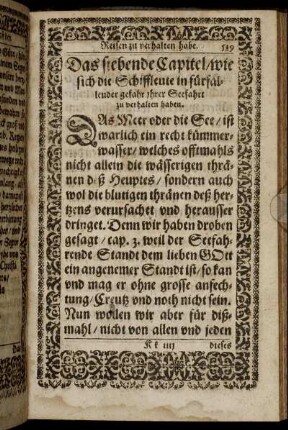 Reisen zu verhalten habe. 519
Das siebende Capitel/wie
sich die Schiffleute in fürfal-
lender gefahr ihrer Seefahrt
zu verhalten haben.
DAs Meer oder die See/ist
warlich ein recht kümmer-
wasser/welches offtmahls
nicht allein die wässerigen thrä-
nen deß Heuptes/sondern auch
wol die blutigen thränen deß her-
tzens verursachet und herausser
dringet. Denn wir haben droben
gesagt/cap. 3. weil der Seefah-
rende Standt dem lieben GOtt
ein angenemer Standt ist/so kan
und mag er ohne grosse anfech-
tung/Creutz und noth nicht sein.
Nun wollen wir aber für diß-
mahl/nicht von allen und jeden
Kk iiij dieses